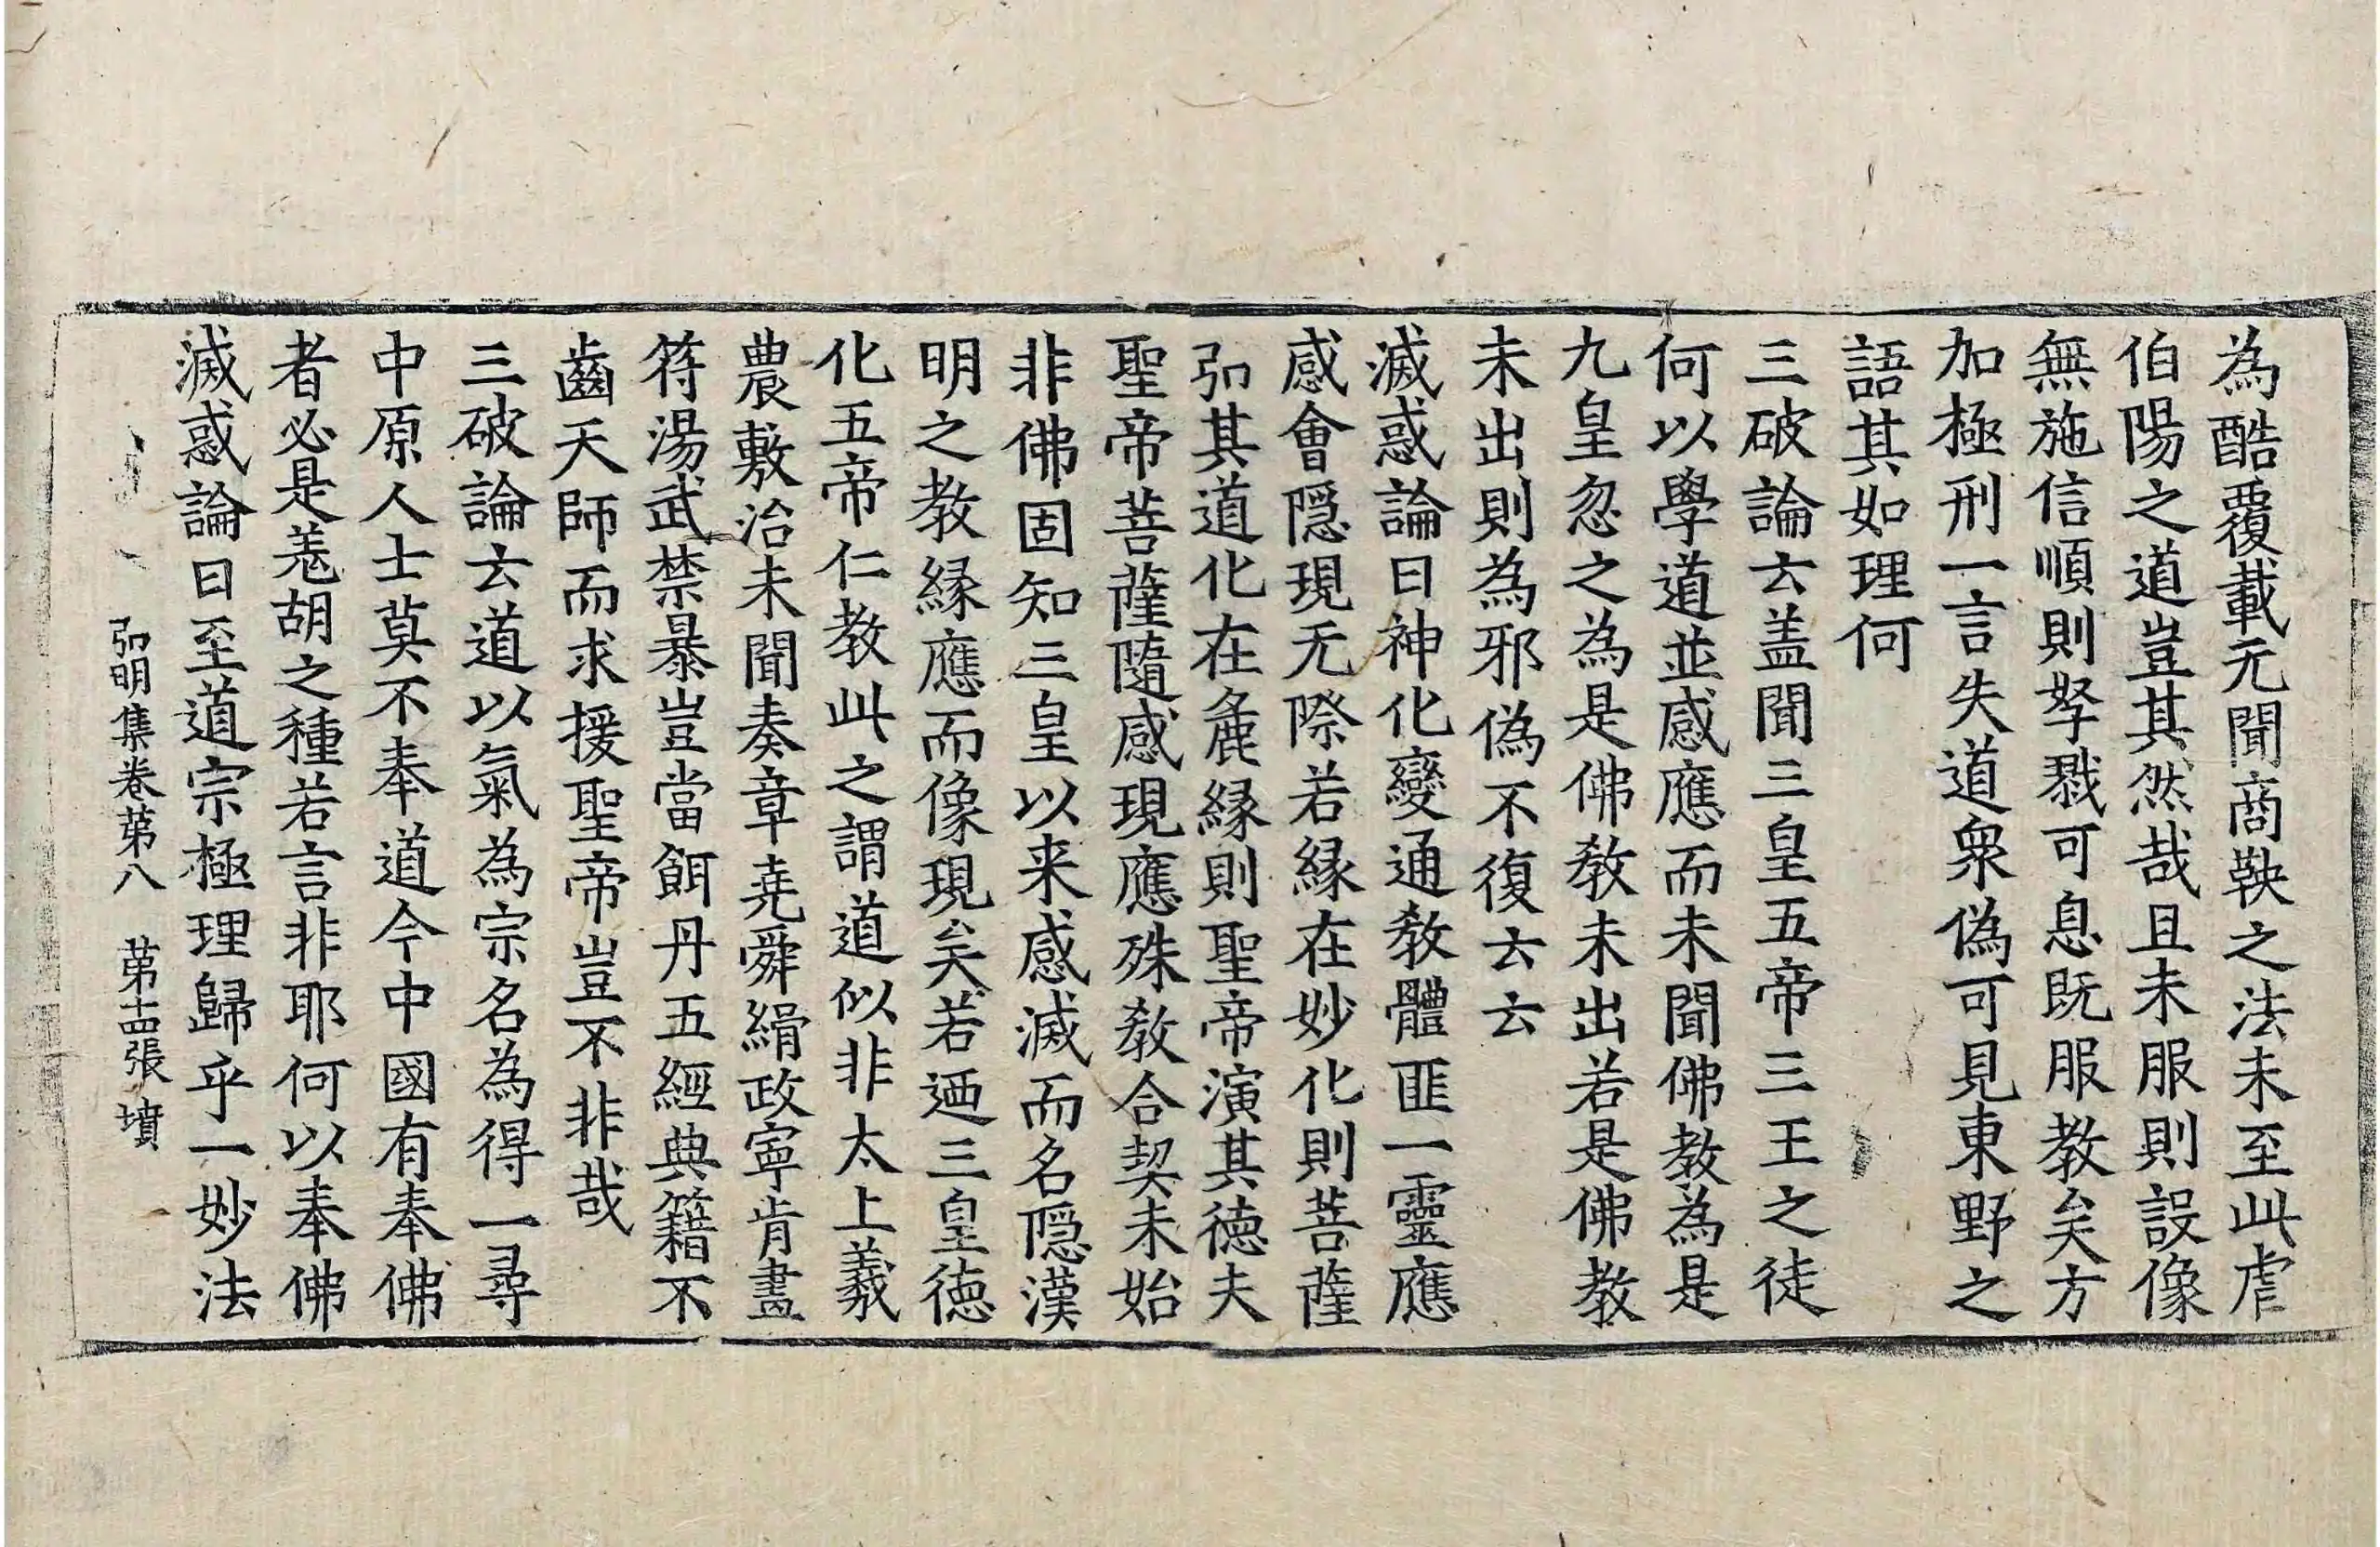 為酷覆載无聞商鞅之法未至此虐
伯陽之道豈其然哉且未服則設像
無施信順則孥戮可息既服教矣方
加極刑一言失道衆偽可見東野之
語其如理何
三破論云盖聞三皇五帝三王之徒
何以學道並感應而未聞佛教為是
九皇忽之為是佛教未出若是佛教
未出則為邪偽不復云云
滅惑論曰神化變通教體匪一靈應
感會隱現无際若緣在妙化則菩薩
弘其道化在麁緣則聖帝演其德夫
聖帝菩薩隨感現應殊教合契未始
非佛固知三皇以来感滅而名隱漢
明之教緣應而像現矣若迺三皇德
化五帝仁教此之謂道似非太上羲
農敷治未聞奏章堯舜緝政寧肯畫
符湯武禁暴豈當餌丹五經典籍不
齒天師而求援聖帝豈不非哉
三破論云道以氣為宗名為得一尋
中原人士莫不奉道今中國有奉佛
者必是羌胡之種若言非耶何以奉佛
滅惑論曰至道宗極理歸乎一妙法
弘明集卷第八　第十四張　墳